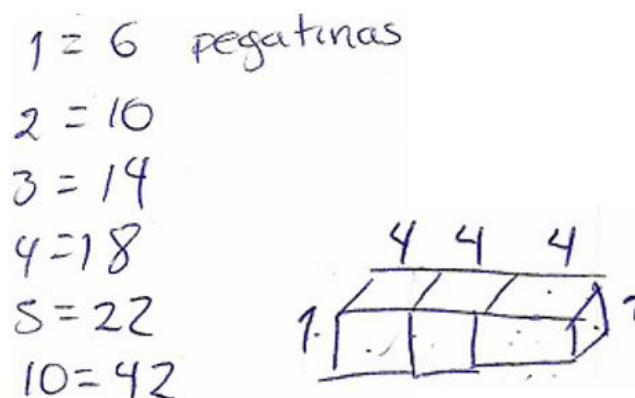 1 = 6 pegatinas
2 = 10
3 = 14
4 = 18
5 = 22
10 = 42
4 4 4
1